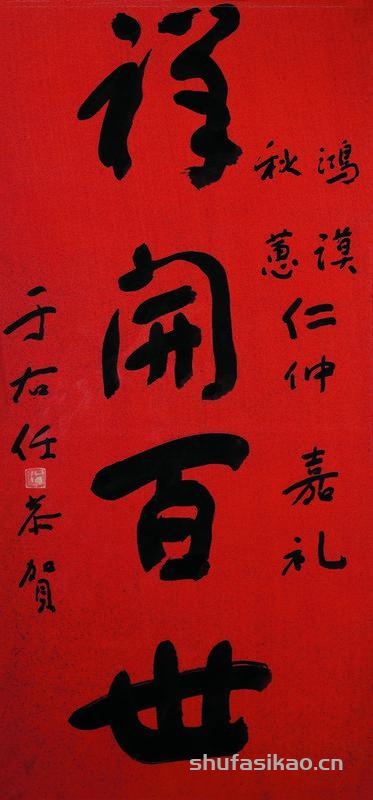 鴻謨
秋蕙
仁仲 嘉礼
祥開百世
于右任 恭賀
shufasikao.cn